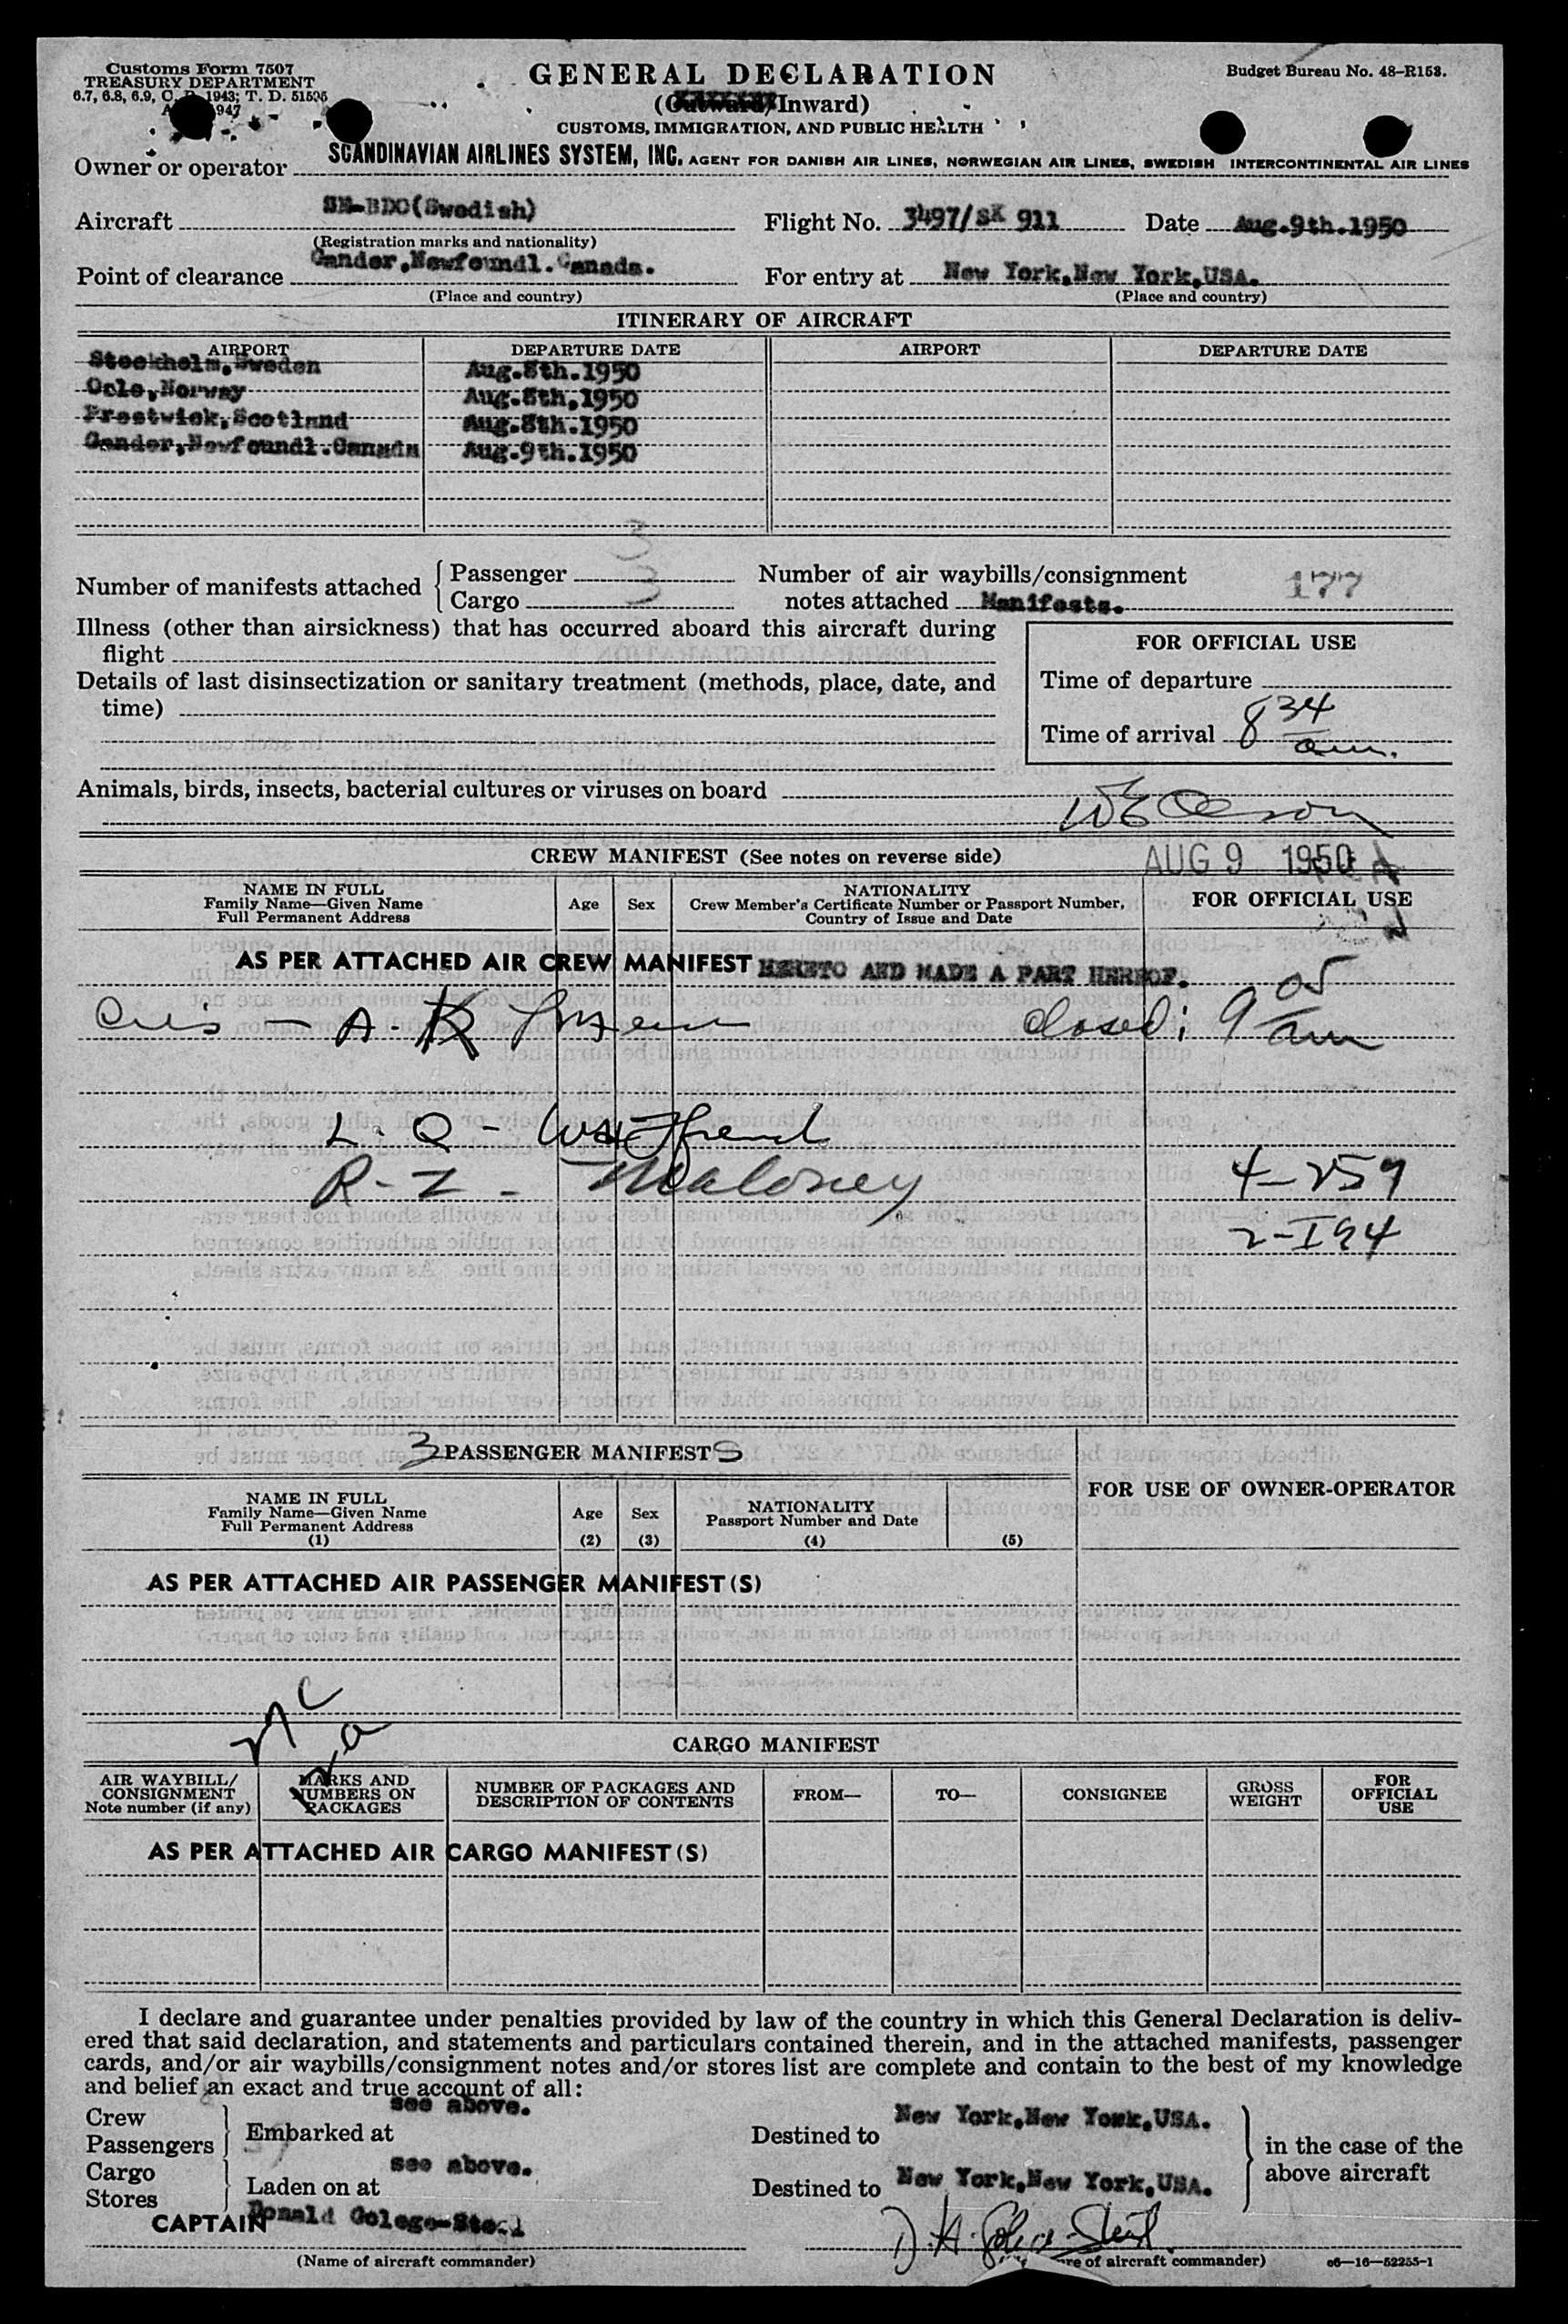 Customs Form 7507
TREASURY DEPARTMENT
6.7, 6.8, 6.9, C. R. 1943; T. D. 51595
1947
GENERAL DECLARATION
(Outward/Inward)
CUSTOMS, IMMIGRATION, AND PUBLIC HEALTH
Budget Bureau No. 48-R153.
Owner or operator SCANDINAVIAN AIRLINES SYSTEM, INC. AGENT FOR DANISH AIR LINES, NORWEGIAN AIR LINES, SWEDISH INTERCONTINENTAL AIR LINES
Aircraft SE-BDO(Swedish) Flight No. 3497/SK 911 Date Aug.9th.1950
(Registration marks and nationality)
Point of clearance Gander,Newfoundl.Canada. For entry at New York,New York,USA.
(Place and country) (Place and country)
ITINERARY OF AIRCRAFT
AIRPORT DEPARTURE DATE AIRPORT DEPARTURE DATE
Stockholm,Sweden Aug.8th.1950
Oslo,Norway Aug.8th,1950
Prestwick,Scotland Aug.8th.1950
Gander,Newfoundl.Canada Aug.9th.1950
Number of manifests attached Passenger 3 Number of air waybills/consignment 177
Cargo 3 notes attached Manifests.
Illness (other than airsickness) that has occurred aboard this aircraft during
flight
FOR OFFICIAL USE
Details of last disinsectization or sanitary treatment (methods, place, date, and
time)
Time of departure
Time of arrival 8 34 am.
Animals, birds, insects, bacterial cultures or viruses on board
CREW MANIFEST (See notes on reverse side) AUG 9 1950
NAME IN FULL
Family Name—Given Name
Full Permanent Address
Age Sex
NATIONALITY
Crew Member's Certificate Number or Passport Number,
Country of Issue and Date
FOR OFFICIAL USE
AS PER ATTACHED AIR CREW MANIFEST HERETO AND MADE A PART HEREOF.
closed: 9 05 am
L. Q -
R - I - Maloney 4-259
2-I94
3 PASSENGER MANIFESTS
NAME IN FULL
Family Name—Given Name
Full Permanent Address
(1)
Age
(2)
Sex
(3)
NATIONALITY
Passport Number and Date
(4) (5)
FOR USE OF OWNER-OPERATOR
AS PER ATTACHED AIR PASSENGER MANIFEST(S)
CARGO MANIFEST
AIR WAYBILL/
CONSIGNMENT
Note number (if any)
MARKS AND
NUMBERS ON
PACKAGES
NUMBER OF PACKAGES AND
DESCRIPTION OF CONTENTS
FROM— TO— CONSIGNEE
GROSS
WEIGHT
FOR
OFFICIAL
USE
AS PER ATTACHED AIR CARGO MANIFEST(S)
I declare and guarantee under penalties provided by law of the country in which this General Declaration is deliv-
ered that said declaration, and statements and particulars contained therein, and in the attached manifests, passenger
cards, and/or air waybills/consignment notes and/or stores list are complete and contain to the best of my knowledge
and belief an exact and true account of all:
Crew
Passengers
Embarked at see above. Destined to New York,New York,USA.
Cargo
Stores
Laden on at see above. Destined to New York,New York,USA.
in the case of the
above aircraft
CAPTAIN Donald
(Name of aircraft commander) re of aircraft commander) c6—16—52255-1